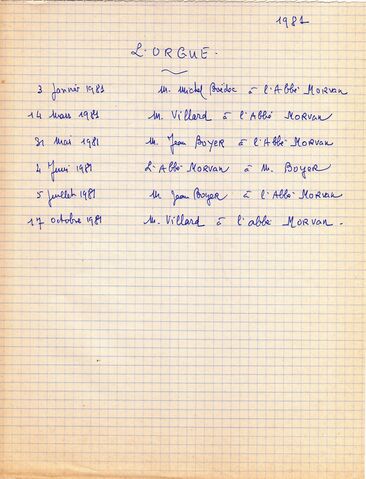 1981
L'ORGUE.
3 Janvier 1981 M. Michel à l'Abbé MORVAN
14 Mars 1981 M. Villard à l'Abbé MORVAN
31 Mai 1981 M. Jean BOYER à l'Abbé MORVAN
4 Juin 1981 L'Abbé MORVAN à M. BOYER
5 Juillet 1981 M. Jean Boyer à l'Abbé MORVAN
17 octobre 1981 M. Villard à l'abbé MORVAN.